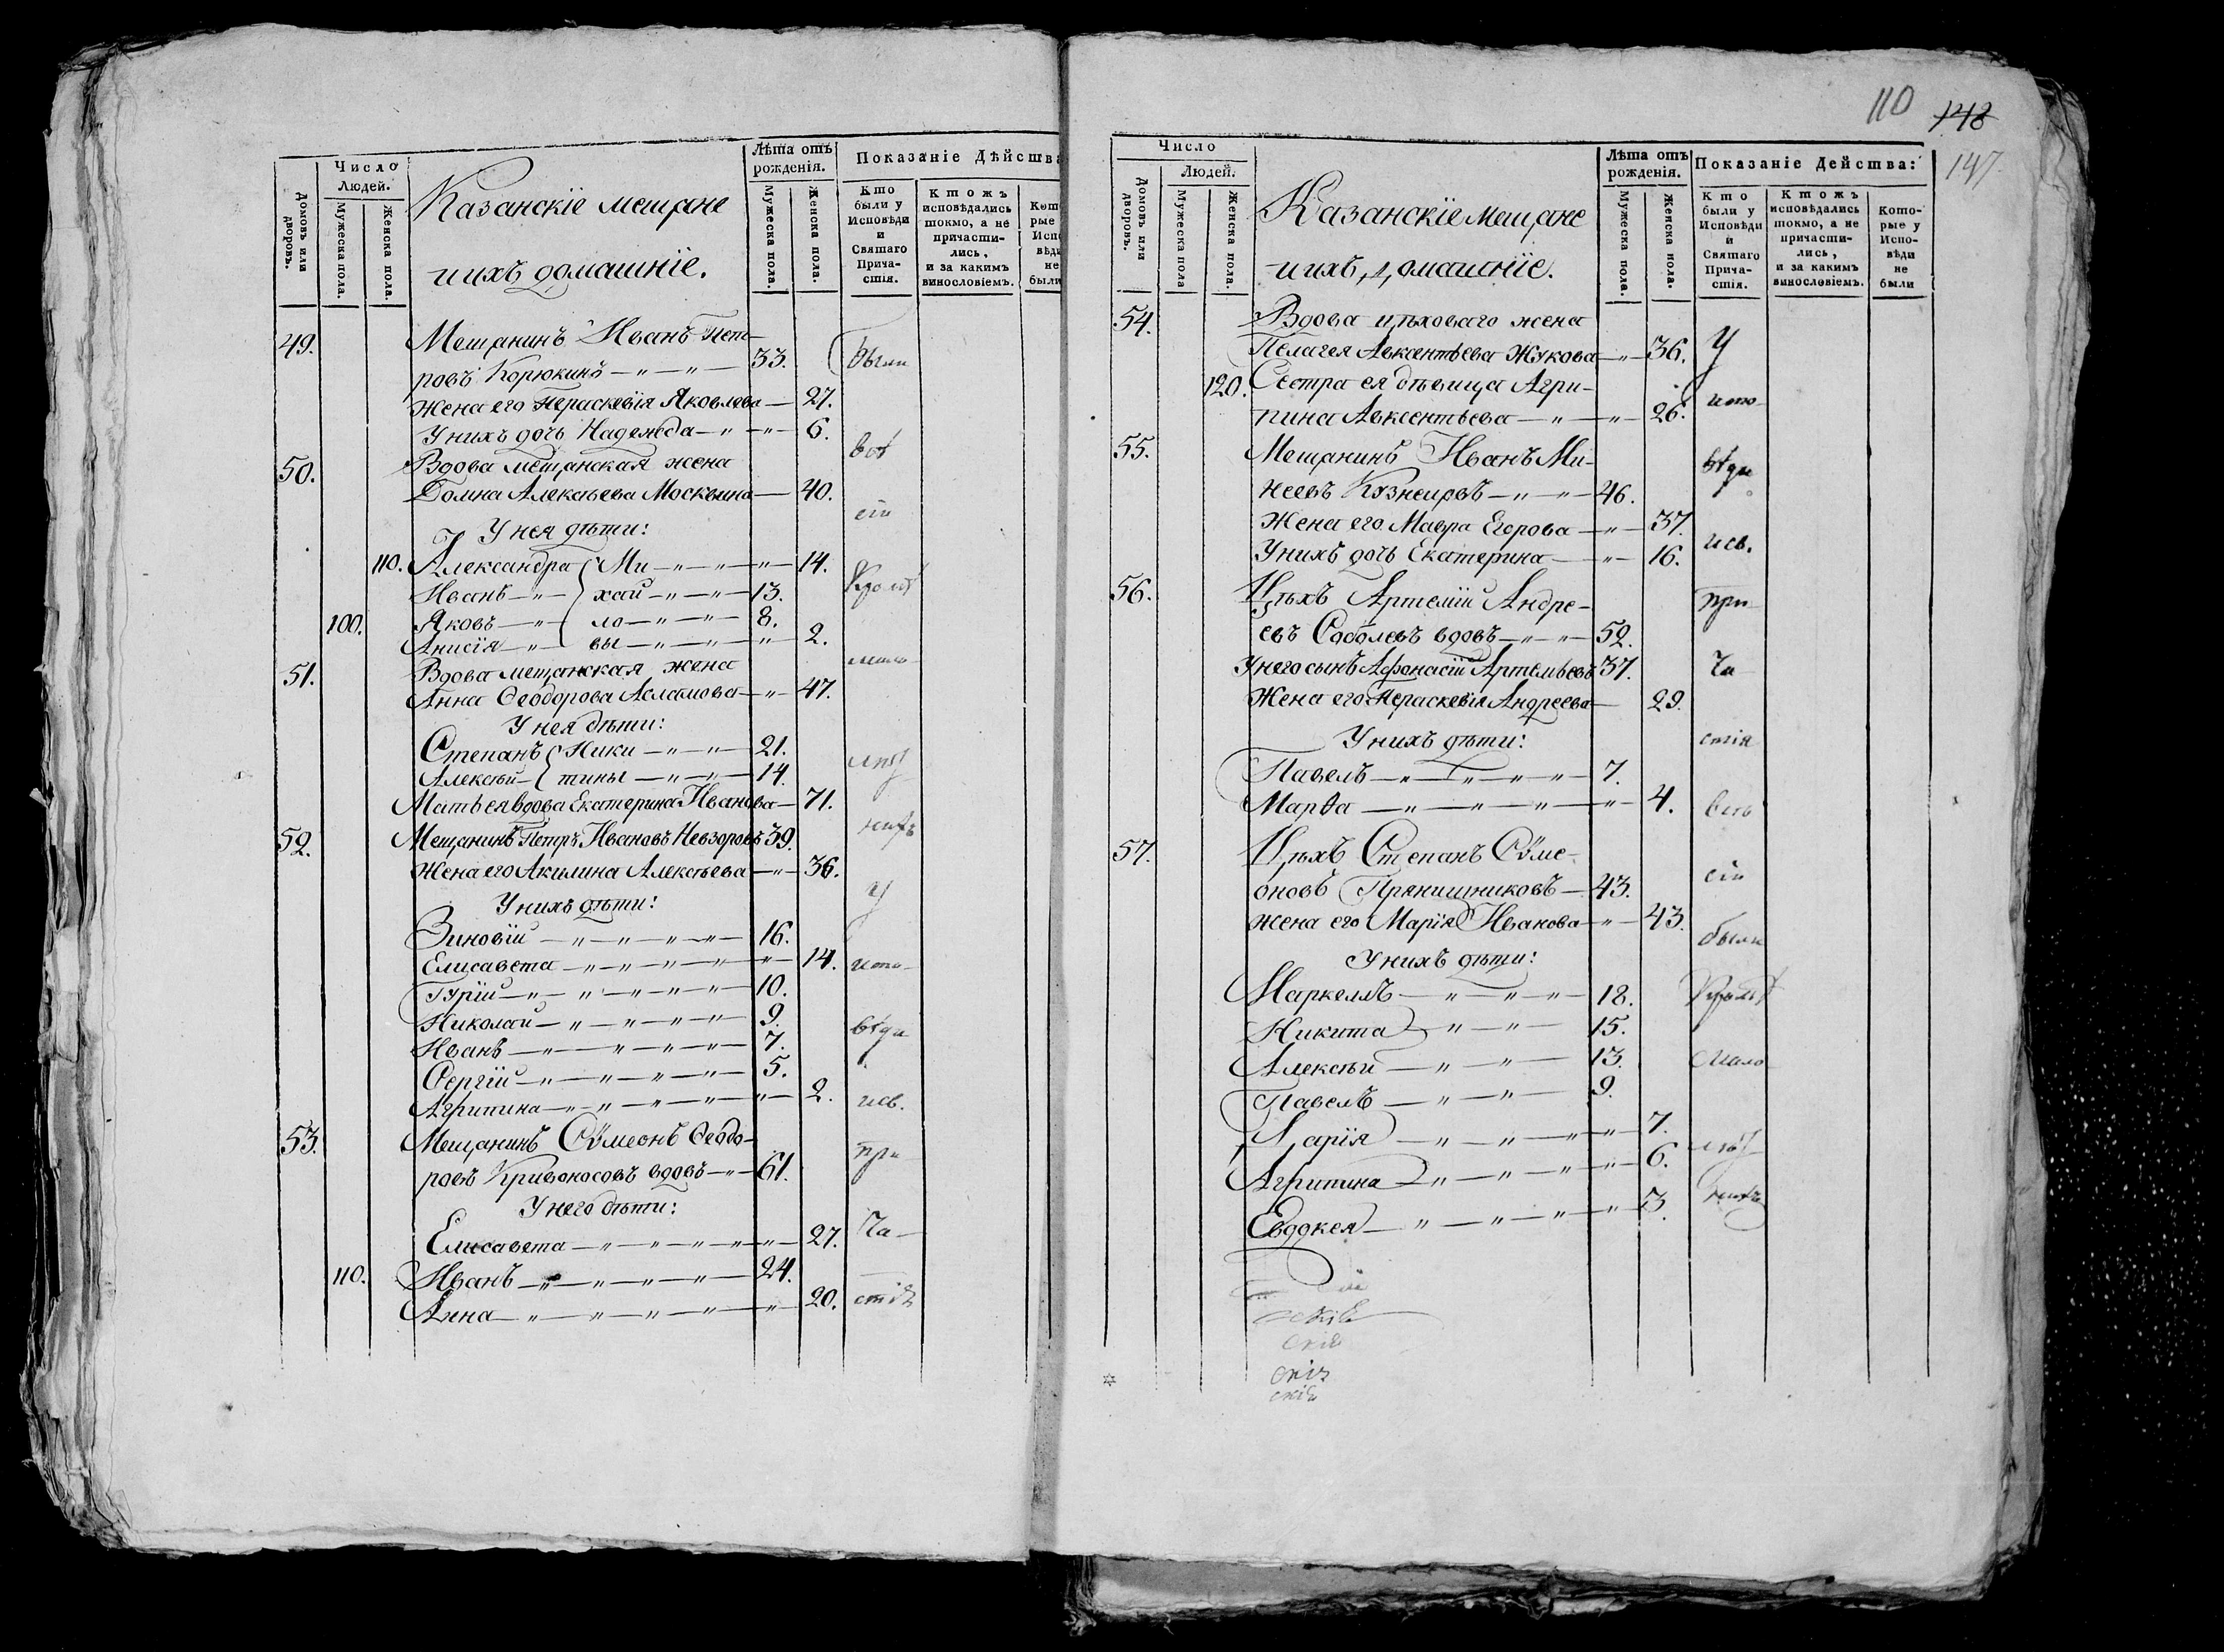 Число
Людей.
Домовъ или дворовъ.
Мужеска пола.
Женска пола.
Казанскіе мещане
и ихъ домашніе.
Лѣта отъ рожденія.
Мужеска пола.
Женска пола.
Показаніе Дѣйства
Кто были у Исповѣди и Святаго Причастія.
Ктожъ исповѣдались токмо, а не причастились, и за какимъ винословіемъ.
49. Мещанинъ Иванъ Пет-
ровъ Корюкинъ — 33. были
Жена его Параскевія Яковлева — 27.
У нихъ дочь Надежда — 6.
50. Вдова мещанская жена всѣ
Домна Алексѣева Москвина — 40.
У нея дѣти: сіи
110. Александра Ми — 14.
Иванъ хай — 13. Кромѣ
100. Яковъ ло — 8.
Анисія вы — 2.
51. Вдова мещанская жена мало-
Анна Ѳеодорова Асламова — 47.
У нея дѣти:
Степанъ Ники — 21.
Алексѣй тины — 14.
Мать ея вдова Екатерина Иванова — 71.
52. Мещанинъ Петръ Ивановъ Невзоровъ 39.
Жена его Акилина Алексѣева — 36.
У нихъ дѣти: У
Зиновій — 16.
Елисавета — 14. испо-
Гурій — 10.
Николай — 9.
Иванъ — 7. вѣди
Сергій — 5.
Агрипина — 2. и св.
53. Мещанинъ Сѵмеонъ Ѳеодо-
ровъ Кривоносовъ вдовъ — 61. при-
У него дѣти:
Елисавета — 27. ча-
110. Иванъ — 24.
Анна — 20. стія
110
148
147
Число
Людей.
Домовъ или дворовъ.
Мужеска пола
Женска пола.
Казанскіе мещане
и ихъ домашніе.
Лѣта отъ рожденія.
Мужеска пола.
Женска пола.
Показаніе Действа:
Кто были у Исповѣди и Святаго Причастія.
Ктожъ исповѣдались токмо, а не причастились, и за какимъ винословіемъ.
Которые у Исповѣди не были
54. Вдова цѣховаго жена
Пелагея Авксентьева Жукова — 36. У
120. Сестра ея дѣвица Агри-
пина Авксентьева — 26. испо-
55. Мещанинъ Иванъ Ми-
неевъ Кузнецовъ — 46. вѣди
Жена его Мавра Егорова — 37.
У нихъ дочь Екатерина — 16. и св.
56. Цѣхъ Артемій Андре-
евъ Соболевъ вдовъ — 52. при-
У него сынъ Афонасій Артемьевъ 37.
Жена его Параскевія Андреева — 29. ча-
У нихъ дѣти: стія
Павелъ — 7.
Марѳа — 4. всѣ
57. Цѣхъ Степанъ Сѵме-
оновъ Прянишниковъ — 43. сіи
Жена его Марія Иванова — 43. были
У нихъ дѣти:
Маркеллъ — 18. Кромѣ
Никита — 15.
Алексѣй — 13. мало
Павелъ — 9.
Марія — 7.
Агрипина — 6.
Евдокея — 3.